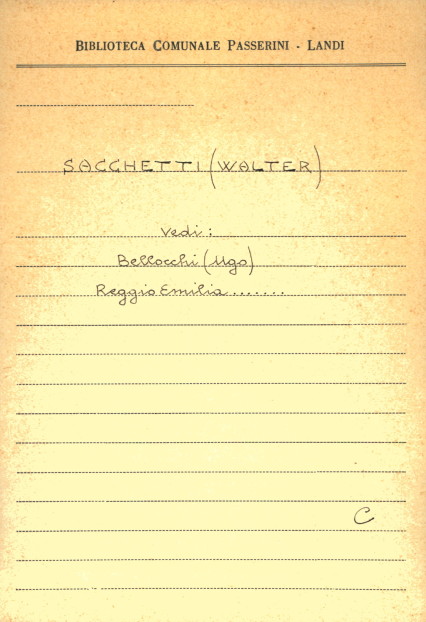 BIBLIOTECA COMUNALE PASSERINI - LANDI
SACCHETTI (WALTER)
Vedi :
Bellocchi (Ugo)
Reggio Emilia.......
C